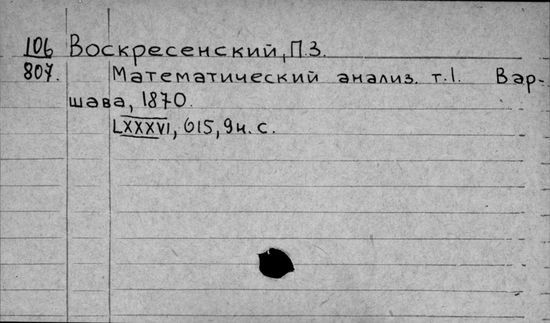 106 Воскресенский, П.З.
807. Математический анализ. т.I. Вар-
шава, 1870.
LXXXVI, 615, 9н. с.